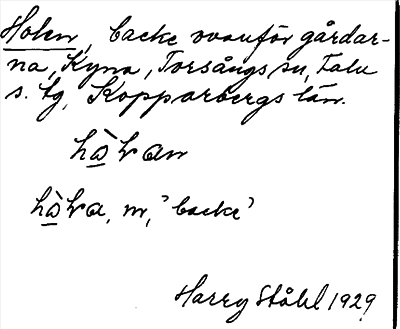 Holen, backe ovanför gårdar-
na, Kyna, Torsångs sn, Falu
s. tg, Kopparbergs län.
hò̲lran
hò̲lra, m, 'backe'
Harry Ståhl 1929